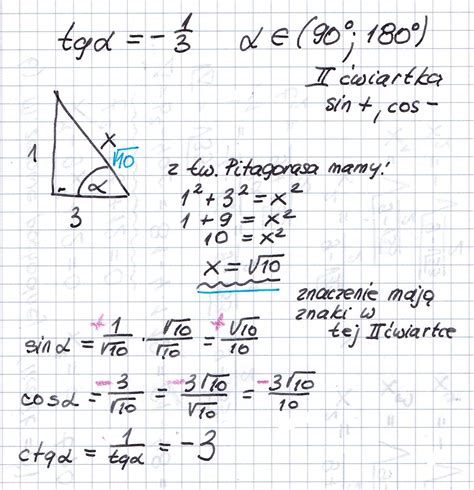 tgα = -1/3    α ∈ (90°; 180°)
II ćwiartka
sin+, cos-
1
x
√10
α
3
z tw. Pitagorasa mamy:
1² + 3² = x²
1 + 9 = x²
10 = x²
x = √10
znaczenie mają
znaki w
tej II ćwiartce
sinα = +1/√10 · √10/√10 = +√10/10
cosα = -3/√10 = -3√10/√10 = -3√10/10
ctgα = 1/tgα = -3